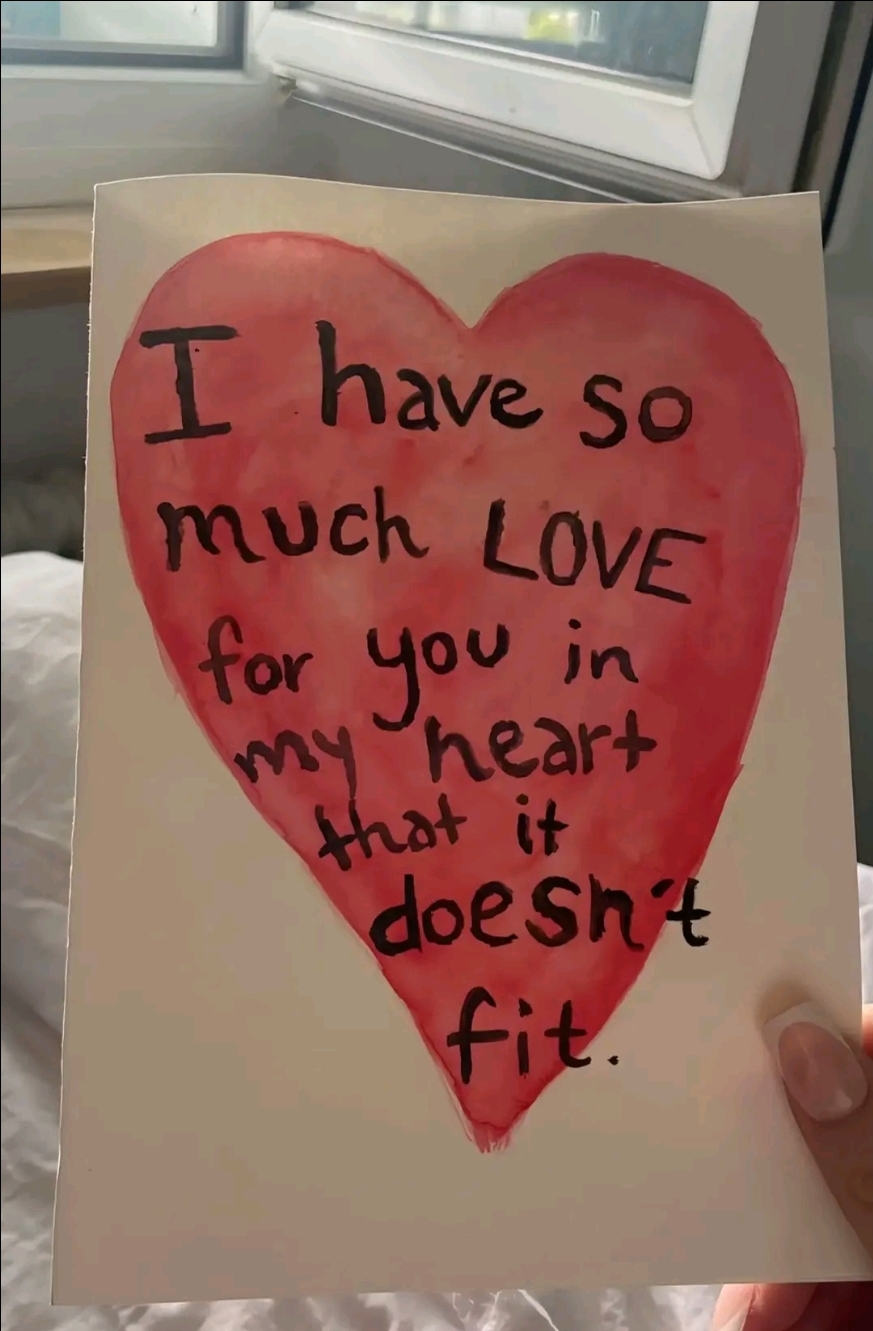 I have so
much LOVE
for you in
my heart
that it
doesn't
fit.